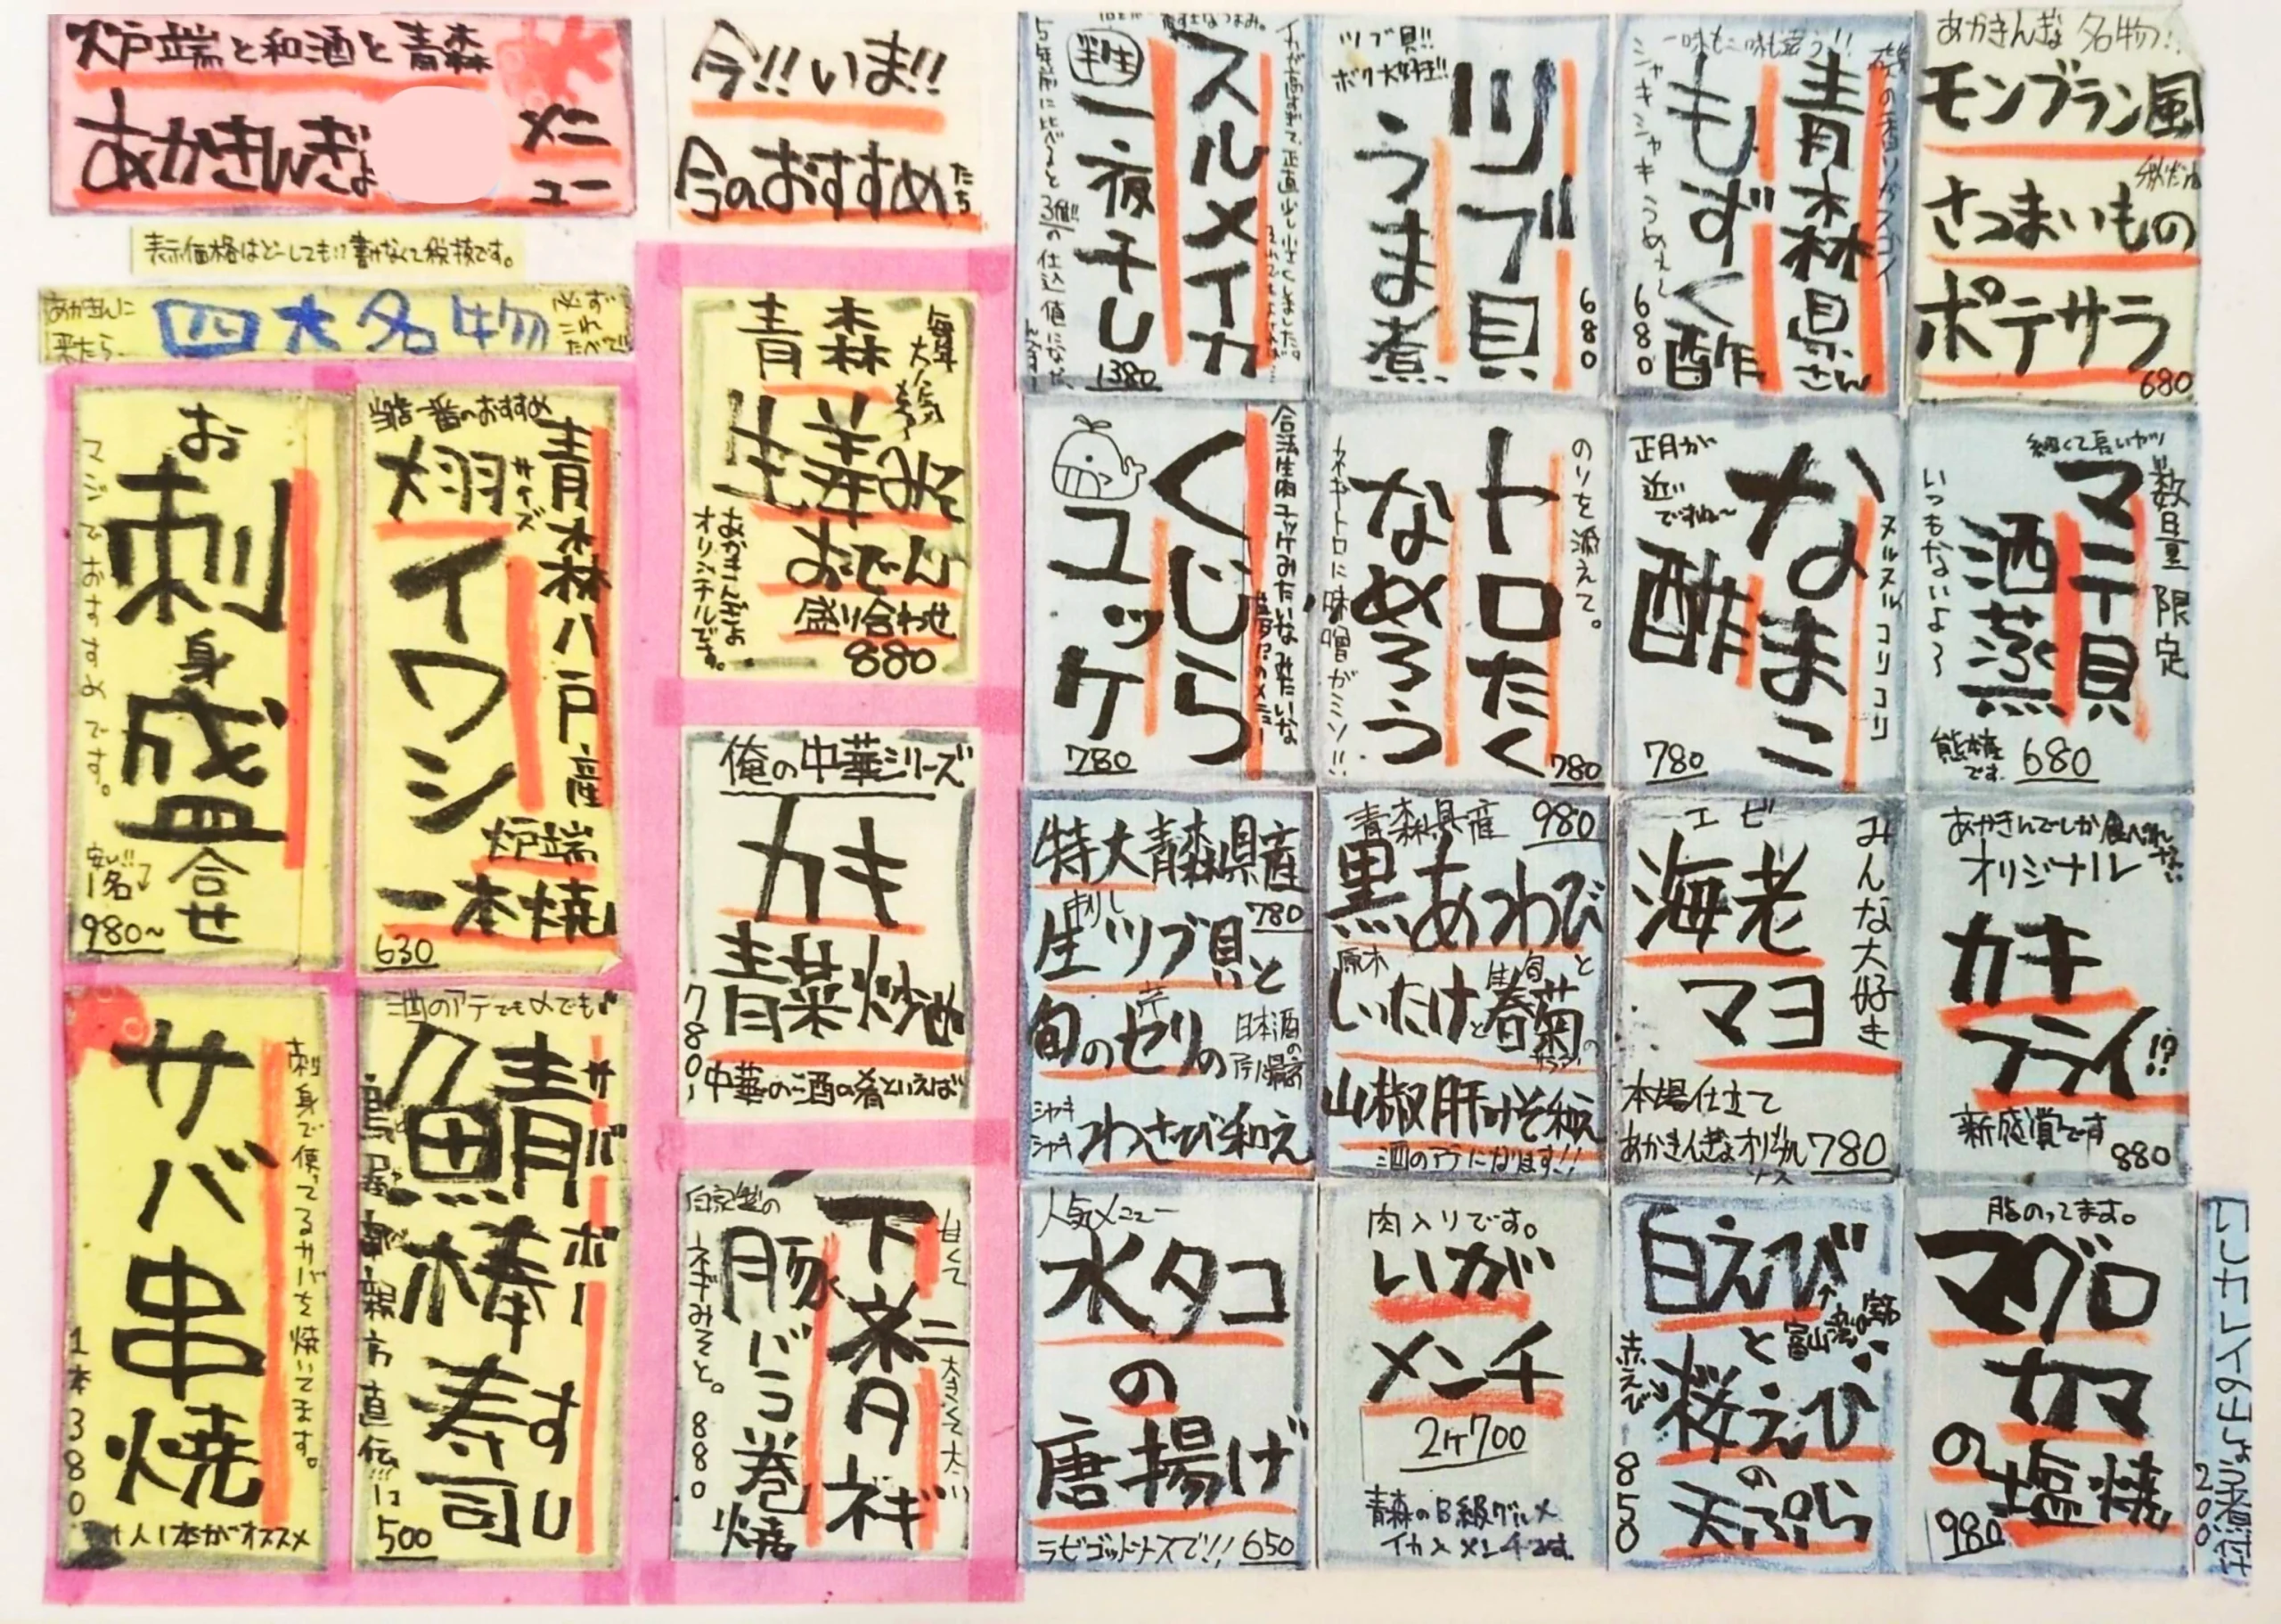 炉端と和酒と青森
あかきんぎょ
メニュー
表示価格はどーしても!!書けなくて税抜です。
あかきんに来たら
四大名物
必ずこれたべて!!
お刺身盛合せ
マジでおすすめです。
安い!!1名
980~
当店一番のおすすめ
青森八戸産
大羽サイズ
イワシ
炉端
一本焼
630
サバ串焼
刺身で使ってるサバを焼いてます。
1本380
1人1本がオススメ
酒のアテでも〆でも
鯖棒寿司
サバボーすし
直伝!!!
500
今!!いま!!
今のおすすめたち
青森
毎年大人気
生姜みそ
おでん
盛り合わせ
880
あかきんぎょオリジナルです。
俺の中華シリーズ
カキ
青菜炒め
780
中華の酒の肴といえば
自家製の
下ネタネギ
甘くて
大きくて太い
豚バラ巻焼
ネギみそと。
880
スルメイカ
半生
一夜干し
1380
ツブ貝!!
ボク大好き!!
ツブ貝
うま煮
680
一味も二味も違う!!
磯の香りがスゴイ
青森県さん
もずく酢
シャキシャキうめぇ~
680
あかきんぎょ名物!!
モンブラン風
秋だね
さつまいもの
ポテサラ
680
合法生肉ユッケみたいなみたいな
夢のメニュー
くじら
ユッケ
780
のりを添えて。
トロたく
なめろう
ネギトロに味噌がミソ!!
780
正月が近いですね~
なまこ
酢
ヌルヌルコリコリ
780
細くて長いヤツ
数量限定
マテ貝
酒蒸し
いつもないよ~
熊本産です。
680
特大青森県産
780
刺し
生ツブ貝と
芹
旬のセリの
日本酒のアテに最高
シャキシャキ
わさび和え
青森県産
980
黒あわび
原木
しいたけと生春菊
旬
と
の
山椒肝みそ和え
酒のアテになります!!
エビ
海老
マヨ
みんな大好き
本場仕立て
あかきんぎょオリジナル
780
あかきんでしか食べれない
オリジナル
カキ
フライ!?
新感覚です
880
人気メニュー
水タコ
の
唐揚げ
ラビゴットソースで!!
650
肉入りです。
いが
メンチ
2ケ700
青森のB級グルメ
イカメンチです。
白えび
富山湾の宝石
と
赤えび
桜えび
の
天ぷら
850
脂のってます。
マグロ
カマ
の
塩焼
980